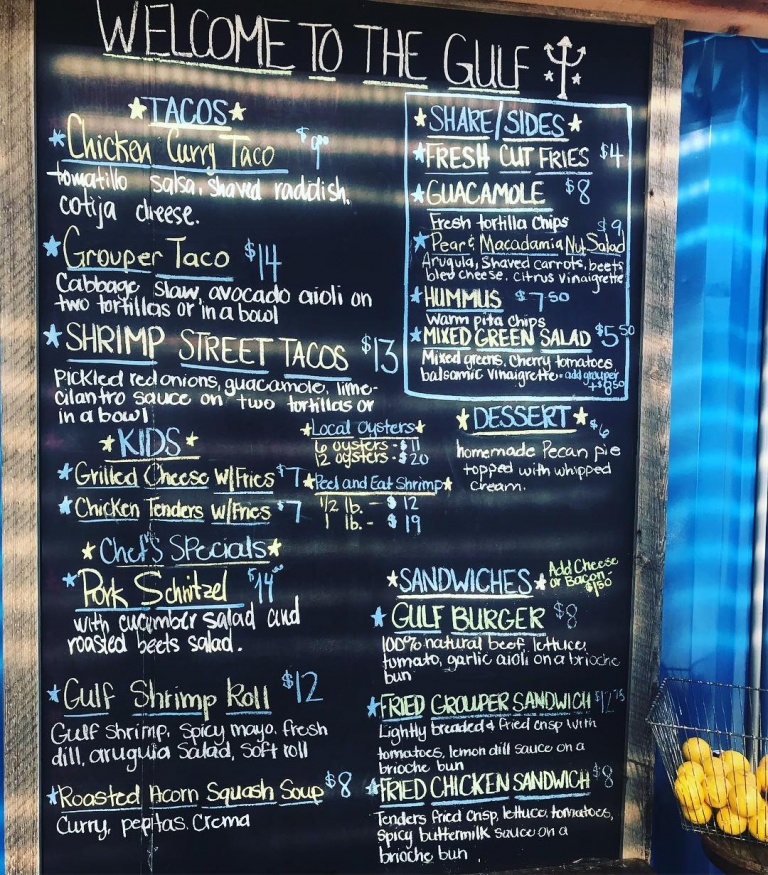 WELCOME TO THE GULF
TACOS
Chicken Curry Taco $9.00
tomatillo salsa, shaved raddish,
cotija cheese.
Grouper Taco $14
Cabbage slaw, avocado aioli on
two tortillas or in a bowl
SHRIMP STREET TACOS $13
Pickled red onions, guacamole, lime-
cilantro sauce on two tortillas or
in a bowl
KIDS
Grilled Cheese w/Fries $7
Chicken Tenders w/Fries $7
Local Oysters
6 oysters - $11
12 oysters - $20
Peel and Eat Shrimp
1/2 lb. - $12
1 lb. - $19
Chef's Specials
Pork Schnitzel $14
with cucumber salad and
roasted beets salad.
Gulf Shrimp Roll $12
Gulf shrimp, spicy mayo, fresh
dill, arugula salad, soft roll
Roasted Acorn Squash Soup $8
Curry, pepitas. Crema
SHARE/SIDES
FRESH CUT FRIES $4
GUACAMOLE $8
Fresh tortilla chips
Pear & Macadamia Nut Salad $9
Arugula, Shaved carrots, beets
bleu cheese. citrus vinaigrette
HUMMUS $7.50
warm pita chips
MIXED GREEN SALAD $5.50
Mixed greens, cherry tomatoes
balsamic vinaigrette - add grouper
+$8.50
DESSERT $6
homemade Pecan pie
topped with whipped
cream.
SANDWICHES
Add Cheese
or Bacon -
$1.50
GULF BURGER $8
100% natural beef, lettuce,
tomato, garlic aioli on a brioche
bun
FRIED GROUPER SANDWICH $12.75
Lightly breaded & fried crisp with
tomatoes, lemon dill sauce on a
brioche bun
FRIED CHICKEN SANDWICH $8
Tenders fried crisp, lettuce, tomatoes,
spicy buttermilk sauce on a
brioche bun